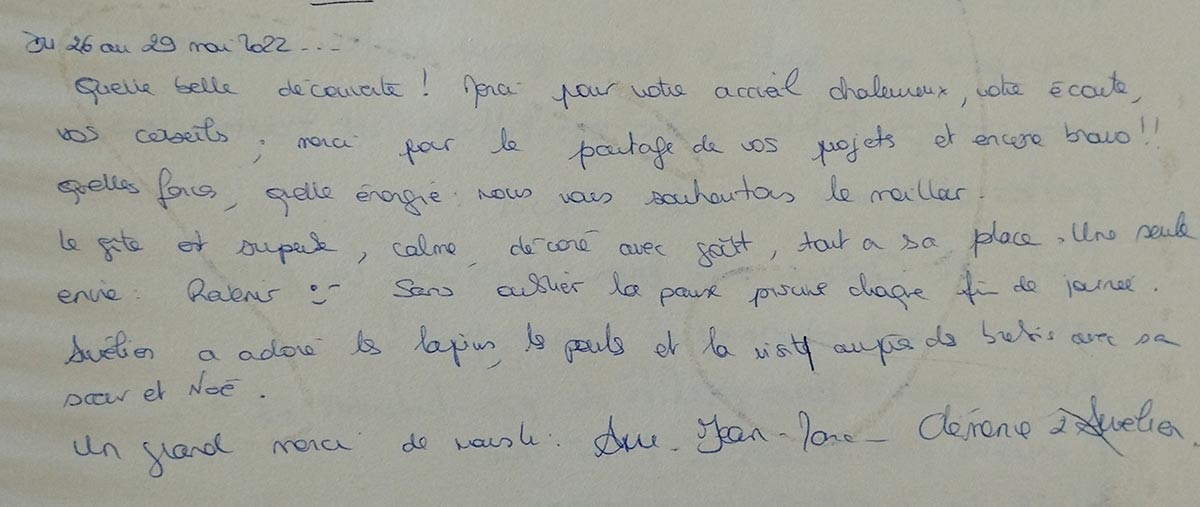 Du 26 au 29 mai 2022...
Quelle belle découverte ! Merci pour votre accueil chaleureux, votre écoute,
vos conseils ; merci pour le partage de vos projets et encore bravo !!
quelles forces, quelle énergie : nous vous souhaitons le meilleur.
Le gîte est superbe, calme, décoré avec goût, tout a sa place. Une seule
envie : Revenir :- Sans oublier la pause piscine chaque fin de journée.
Aurélien a adoré les lapins, les poules et la visite auprès des brebis avec sa
sœur et Noé.
Un grand merci de nous 4 : Jean-Marc - Clémence Aurélien.